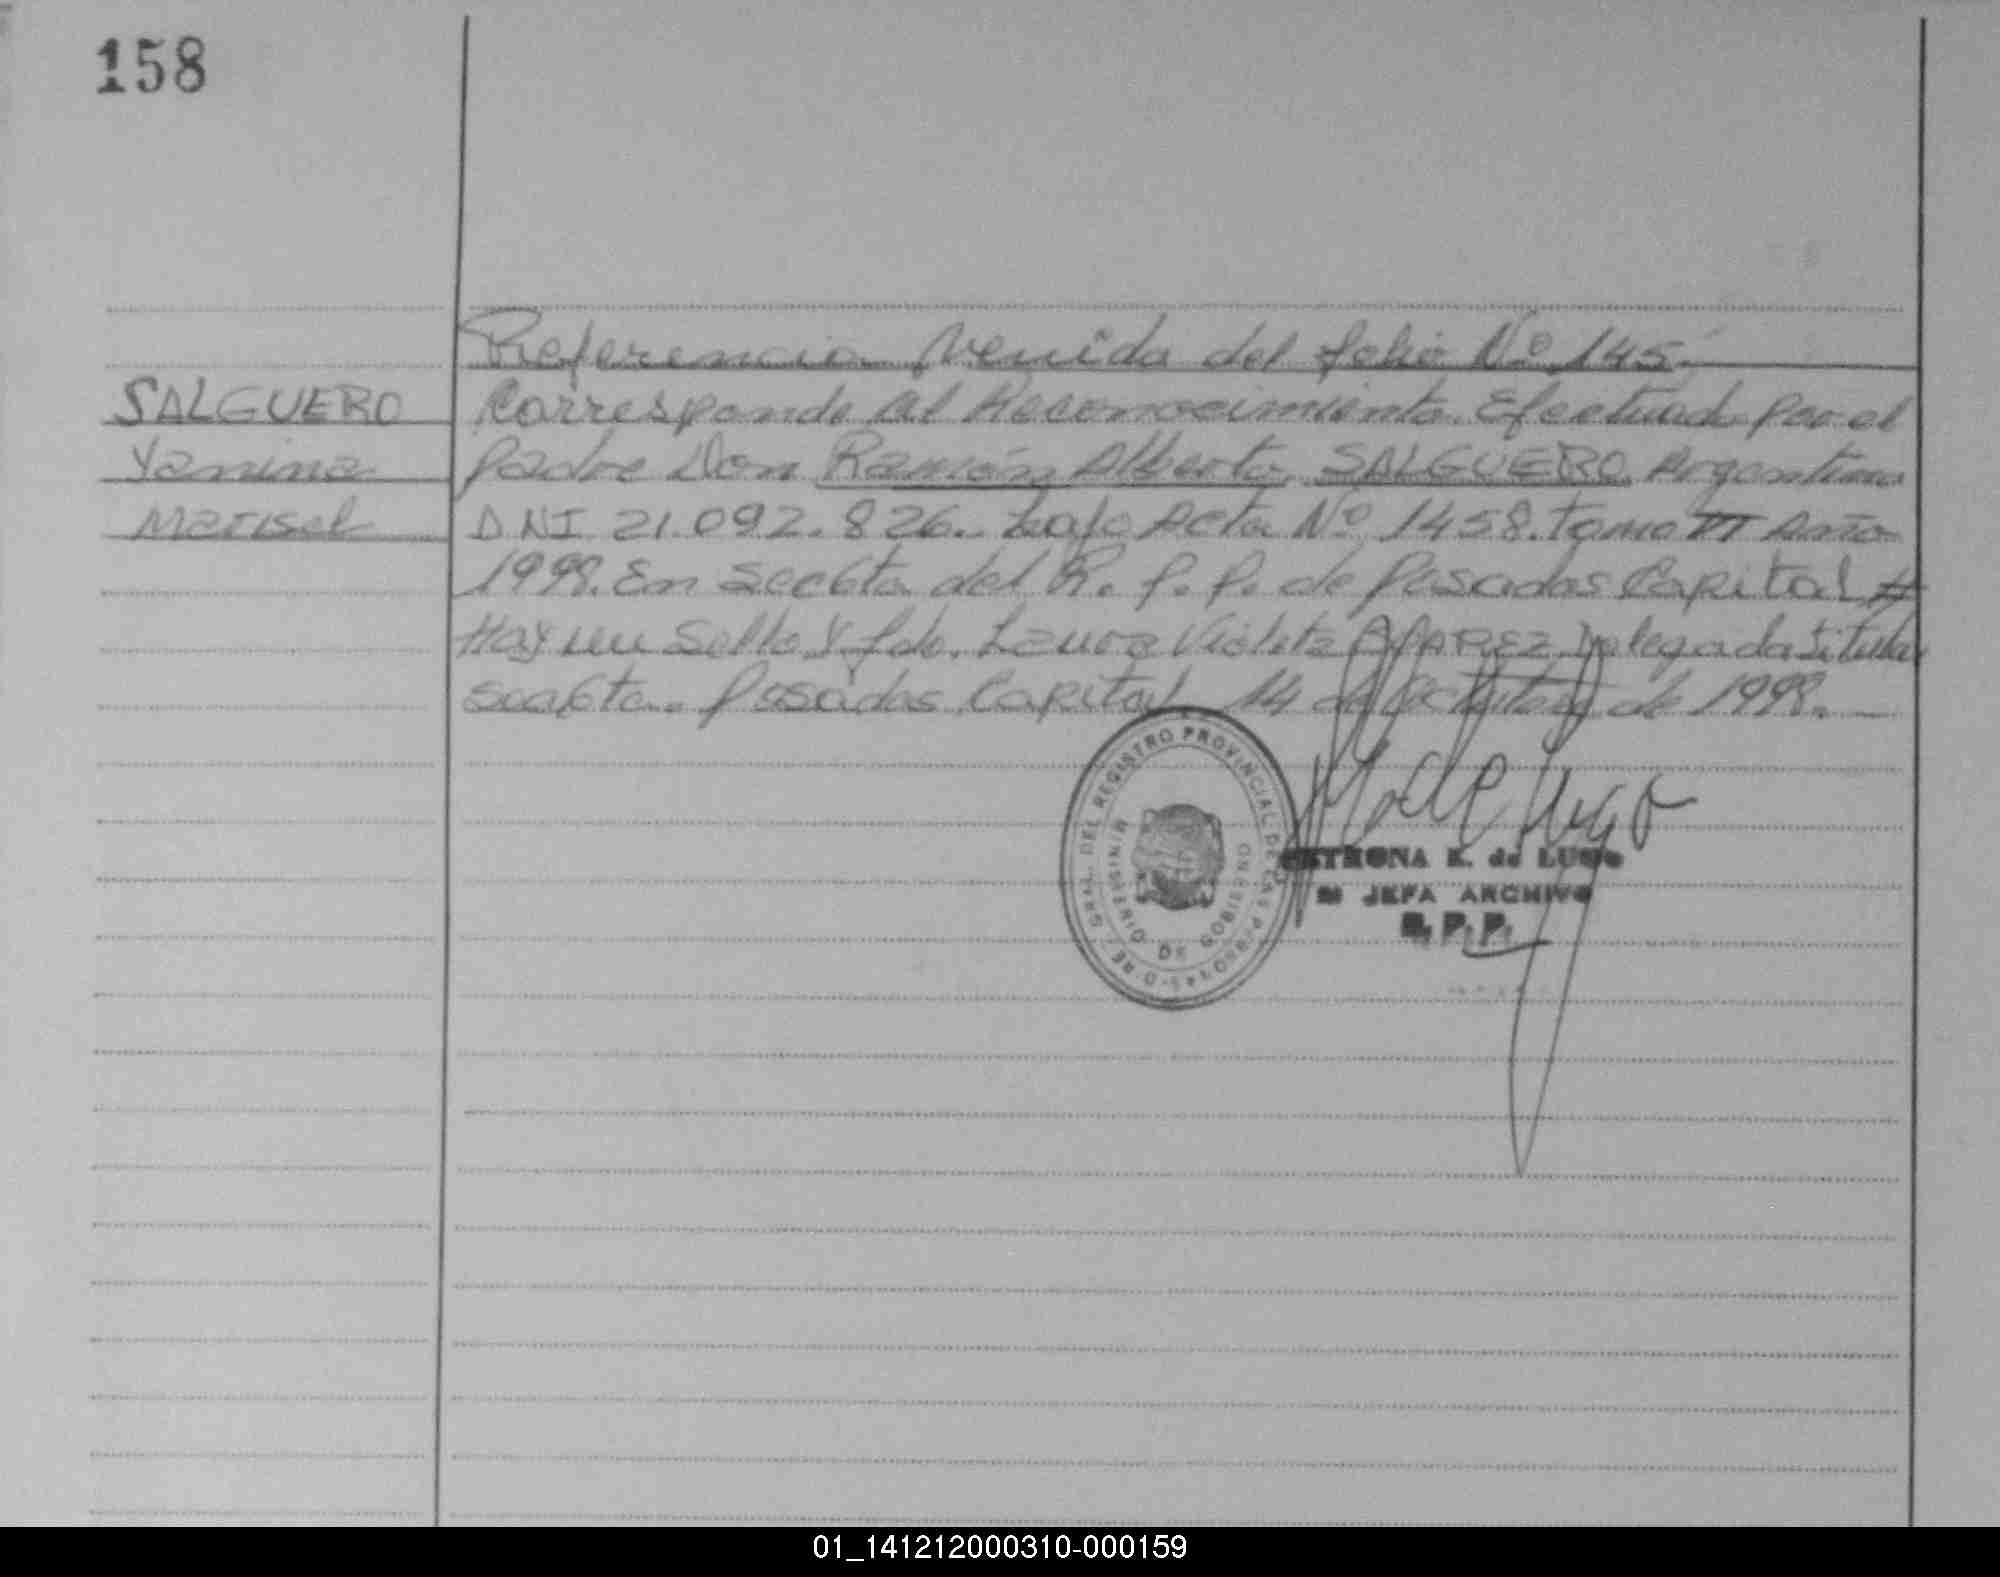 158
Referencia Venida del folio Nº 145.
SALGUERO
Yanina
Marisel
Corresponde al Reconocimiento Efectuado por el
padre Don Ramón Alberto SALGUERO Argentino
DNI 21.092.826.- bajo Acta Nº 1458. tomo Año
1998. En Secc 6ta del R. P. P. de Posadas Capital #
Hay un Sello y fdo. Laura Violeta Delegada titular
Secc 6ta. Posadas Capital 14 de Octubre de 1998.
GRAL. DEL REGISTRO PROVINCIAL DE LAS PERSONAS
MINISTERIO DE GOBIERNO
PETRONA K. de LUGO
JEFA ARCHIVO
R. P. P.
01_141212000310-000159